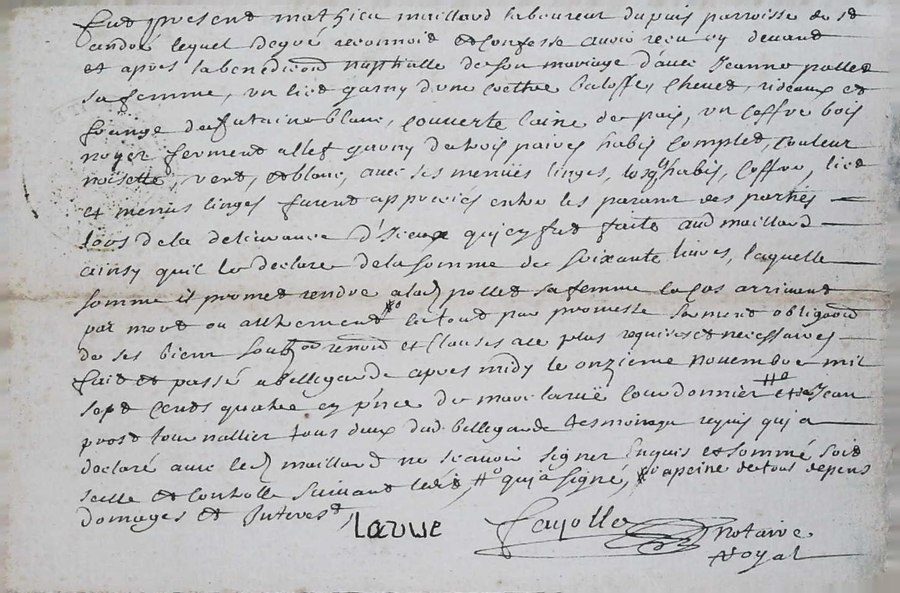 fut present mathieu maillard laboureur du puis parroisse de st
andré lequel de gré reconnoit et confesse avoir receu cy devant
et apres la benediction nuptialle de son mariage d'avec Jeanne pollet
sa femme, un lict garny d'une coethre baloffe, chevet, rideaux et
frange de futaine blanc, couverte laine de pais, un coffre bois
noyer ferment a clef garny de trois paires habis complet, couleur
noisette, vert, et blanc, avec ses menües linges, lesqs habis, coffre, lict
et menus linges furent appreciés entre les parans des parties
lors de la delivrance d'Iceux qui cy fut faite aud maillard
ainsy qu'il le declare de la somme de soixante livres, laquelle
somme il promet rendre a lad pollet sa femme le cas arrivant
par mort ou autrement #o le tout par promesse serment obligaon
de ses biens soubon renon et clauses au plus requises et necessaires
fait et passé a bellegarde apres midy le onzieme novembre mil
sept cents quatre en p'nce de marc larüe courdonnier #o et Jean
prost tournallier tous deux dud bellegarde tesmoings requis qui a
declaré avec led maillard ne scavoir signer Enquis et sommé soit
scellé et controllé suivant l'edit, #o qui a signé, #o a peine de tous depens
domages et Interest
larue
fayolle notaire
Royal